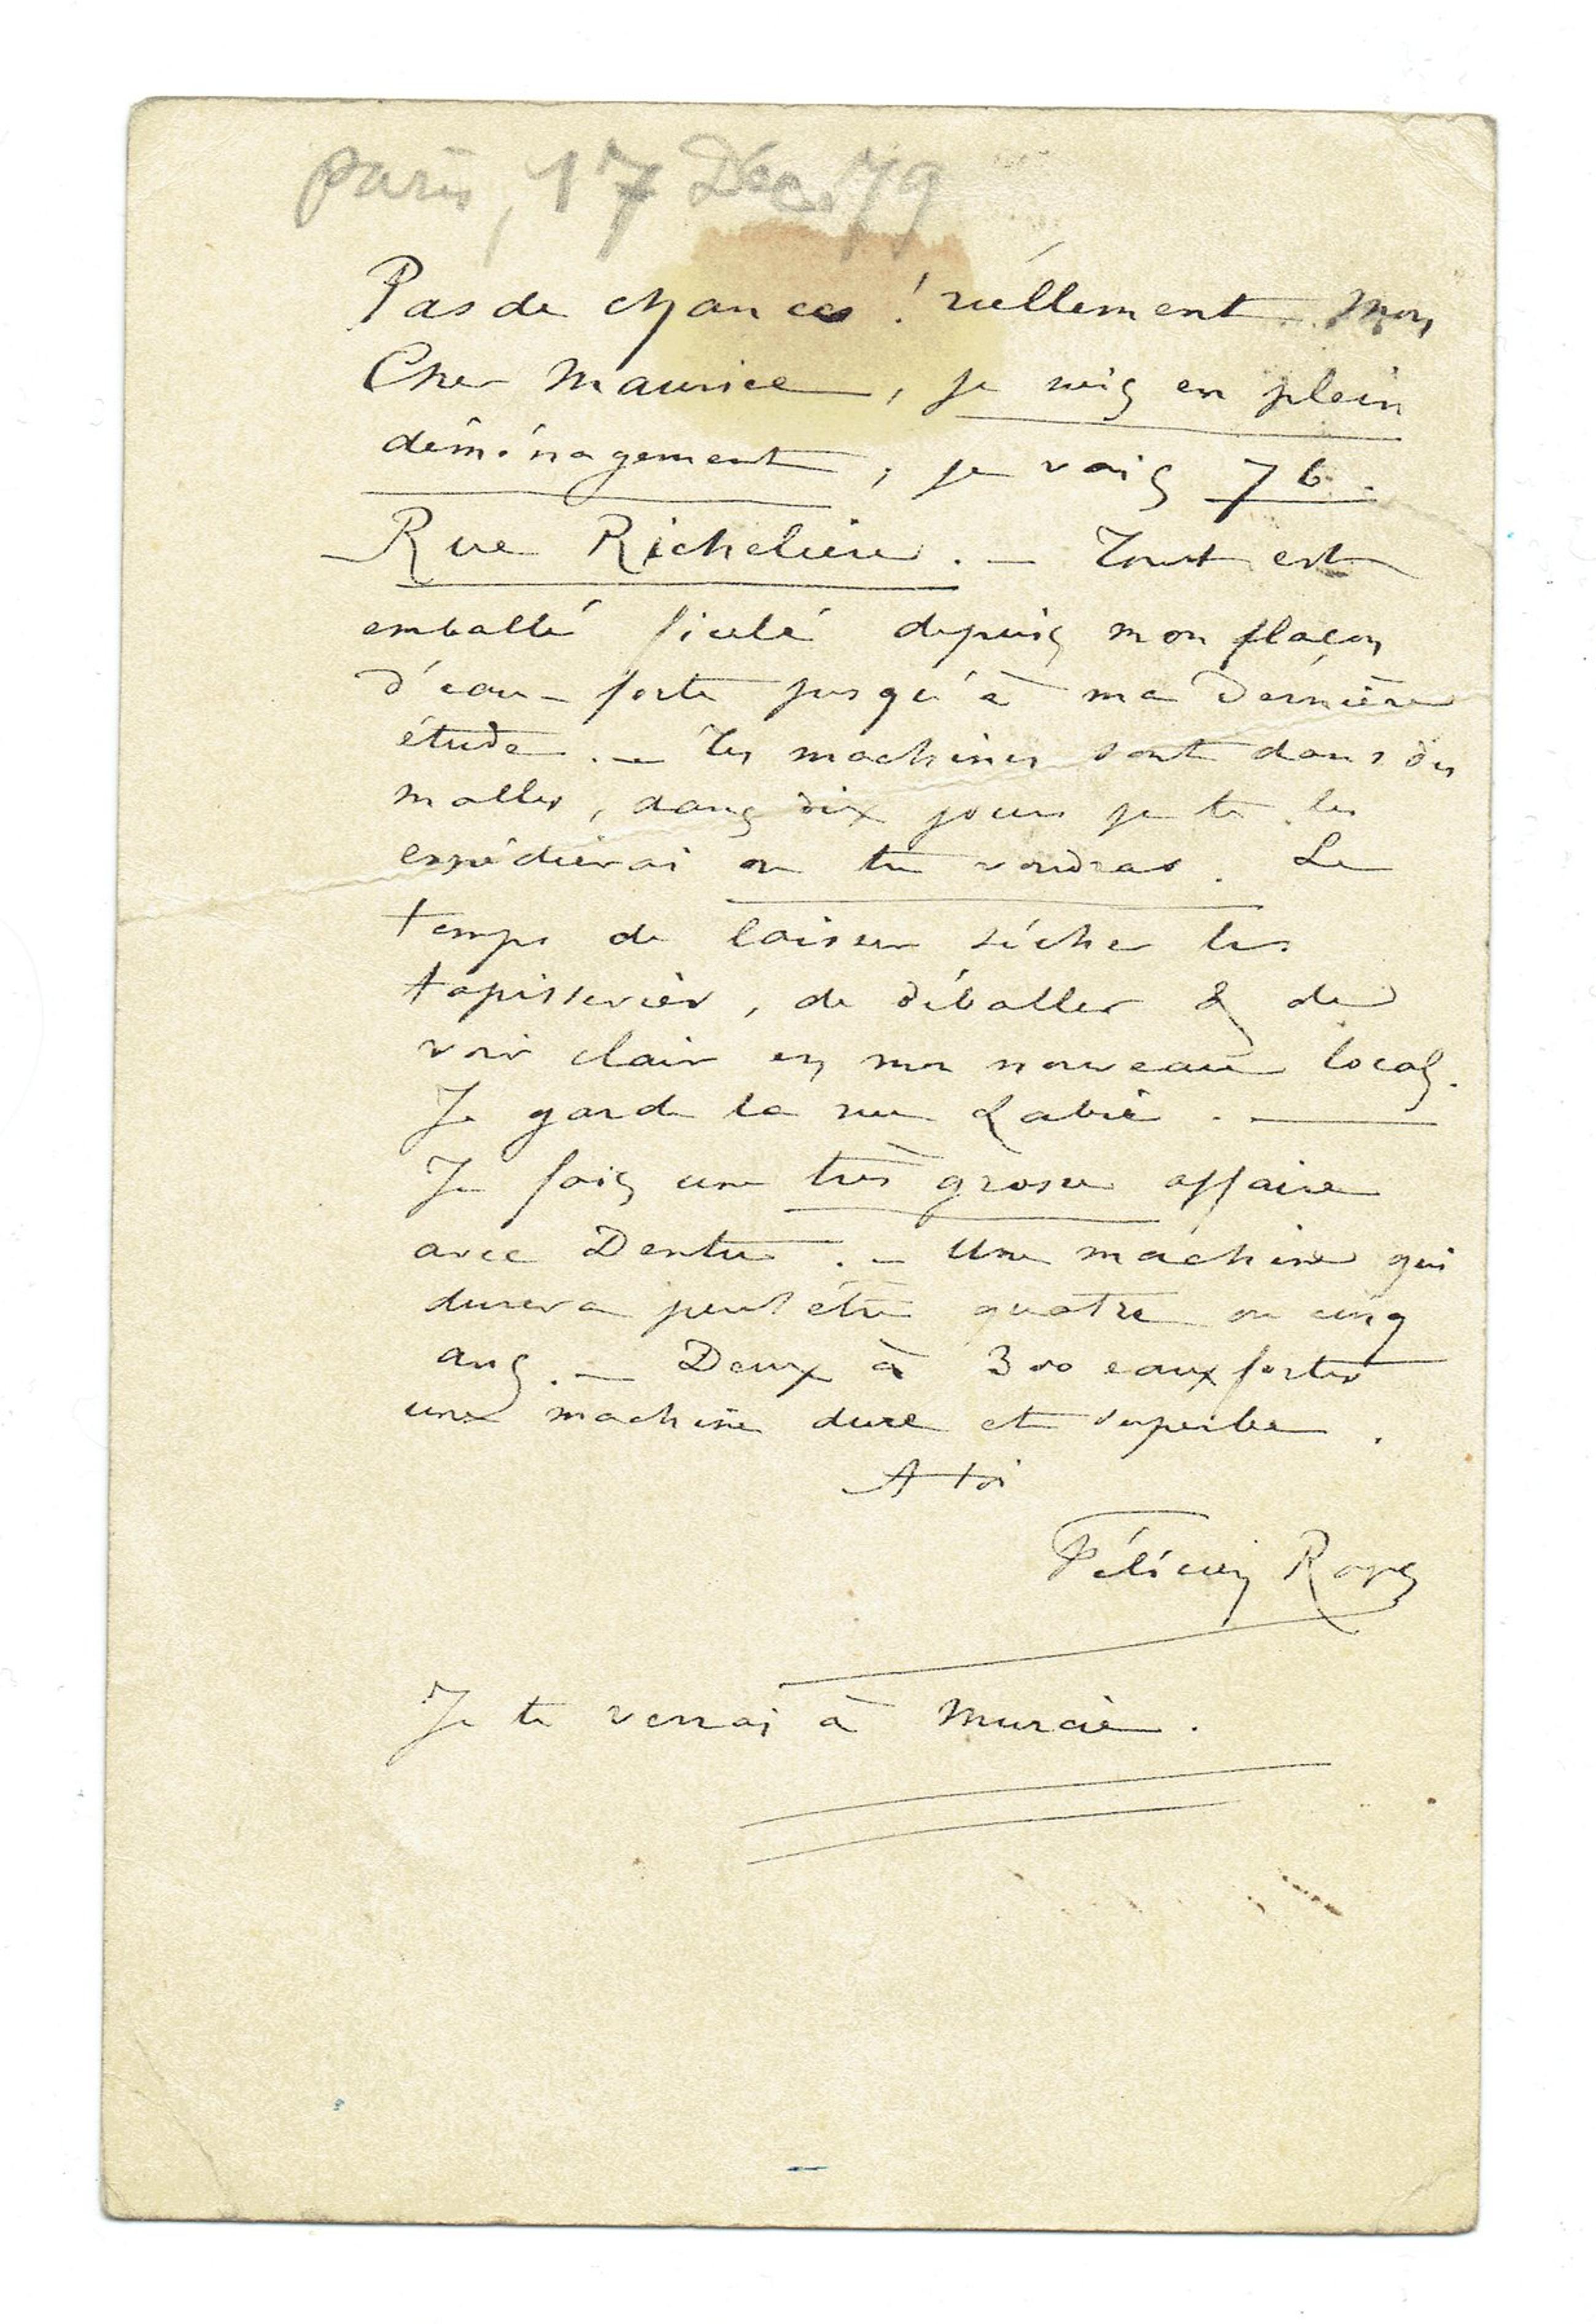 Paris, 17 Déc. 79
Pas de chances ! réellement mon
Cher Maurice, je suis en plein
déménagement, je vais 76.
Rue Richelieu. — Tout est
emballé ficelé depuis mon flacon
d'eau-forte jusqu'à ma dernière
étude. — Tes machines sont dans des
malles, dans dix jours je te les
expédierai où tu voudras. Le
temps de laisser sécher les
tapisseries, de déballer & de
voir clair en mon nouveau local.
Je garde la rue Labie. —
Je fais une très grosse affaire
avec Dentu. — Une machine qui
durera peut être quatre ou cinq
ans. — Deux à 300 eaux fortes
une machine dure et superbe.
A toi
Félicien Rops
Je te verrai à Murcie.